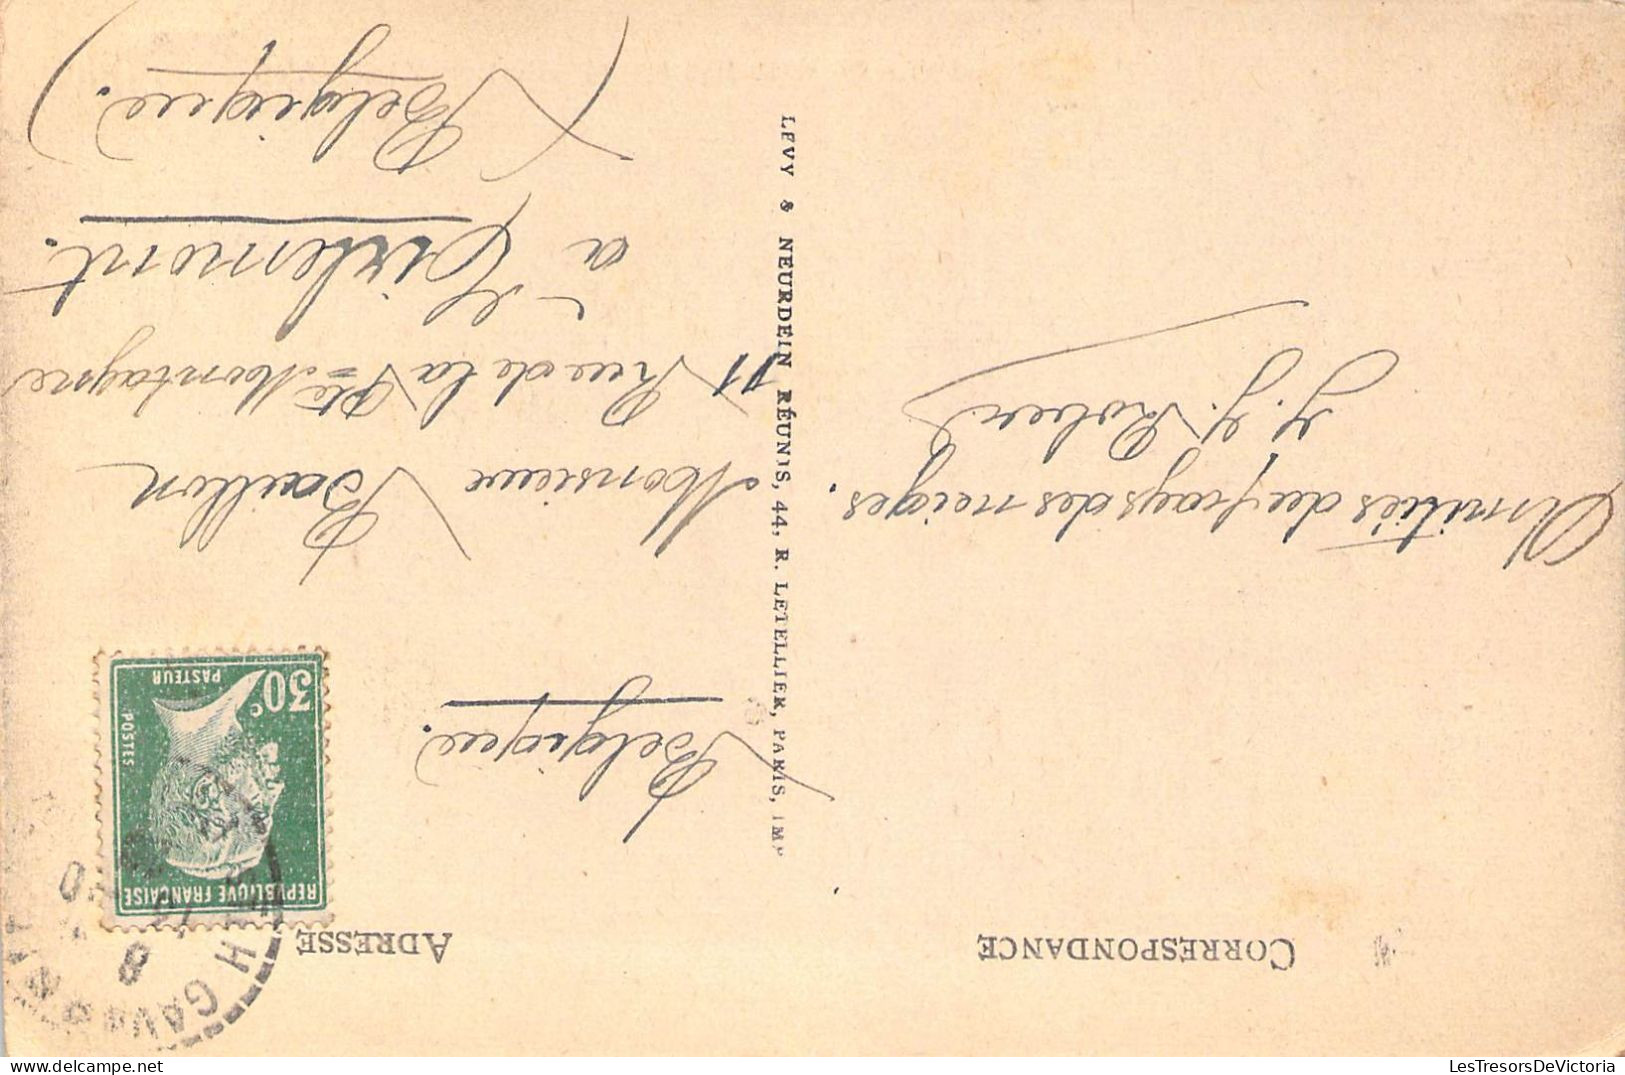 CORRESPONDANCE
Amitiés du pays des neiges.
J. J. Robert
LEVY & NEURDEIN RÉUNIS, 44, R. LETELLIER, PARIS, IMP
ADRESSE
REPUBLIQUE FRANÇAISE
POSTES
30c
PASTEUR
GAV
8
Belgique.
Monsieur Baillon
11 Rue de la Pte Montagne
à Tirlemont.
(Belgique.)
LesTresorsDeVictoria